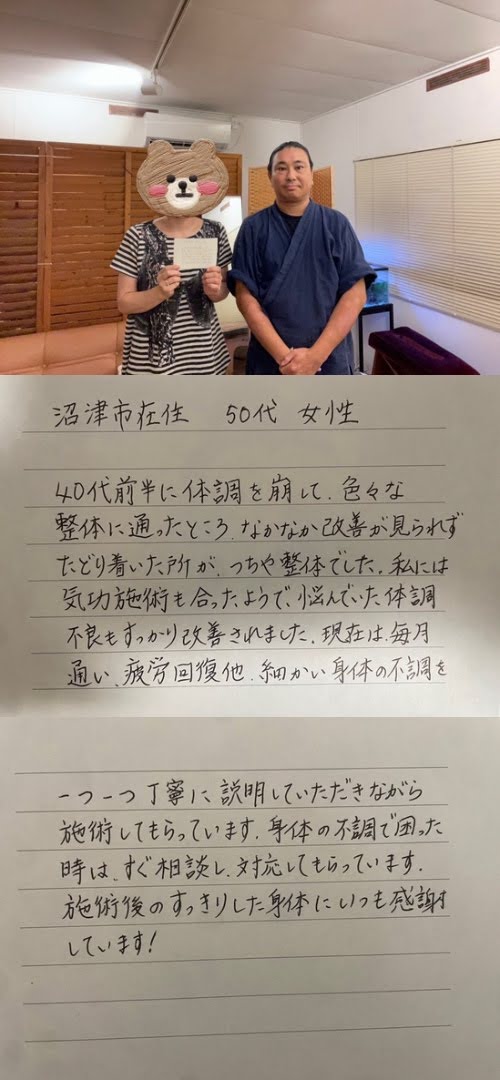 沼津市在住 50代 女性
40代前半に体調を崩して、色々な
整体に通ったところ、なかなか改善が見られず
たどり着いた所が、つちや整体でした。私には
気功施術も合ったようで、悩んでいた体調
不良もすっかり改善されました。現在は、毎月
通い、疲労回復他、細かい身体の不調を
一つ一つ丁寧に説明していただきながら
施術してもらっています。身体の不調で困った
時は、すぐ相談し、対応してもらっています。
施術後のすっきりした身体にいつも感謝
しています!